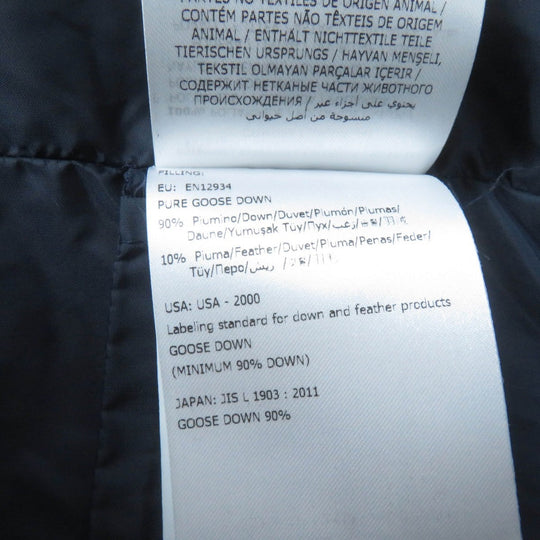 PARTES NO TEXTILES DE ORIGEN ANIMAL /
CONTÉM PARTES NÃO TÊXTEIS DE ORIGEM
ANIMAL / ENTHÄLT NICHTTEXTILE TEILE
TIERISCHEN URSPRUNGS / HAYVAN MENŞELİ,
TEKSTİL OLMAYAN PARÇALAR İÇERİR /
СОДЕРЖИТ НЕТКАНЫЕ ЧАСТИ ЖИВОТНОГО
ПРОИСХОЖДЕНИЯ / يحتوي على أجزاء غير
منسوجة من أصل حيواني
FILLING:
EU: EN12934
PURE GOOSE DOWN
90% Piumino/Down/Duvet/Plumón/Plumas/
Daune/Yumuşak Tüy/Пух/زغب/
10% Piuma/Feather/Duvet/Pluma/Penas/Feder/
Tüy/Перо/ريش/
USA: USA - 2000
Labeling standard for down and feather products
GOOSE DOWN
(MINIMUM 90% DOWN)
JAPAN: JIS L 1903 : 2011
GOOSE DOWN 90%